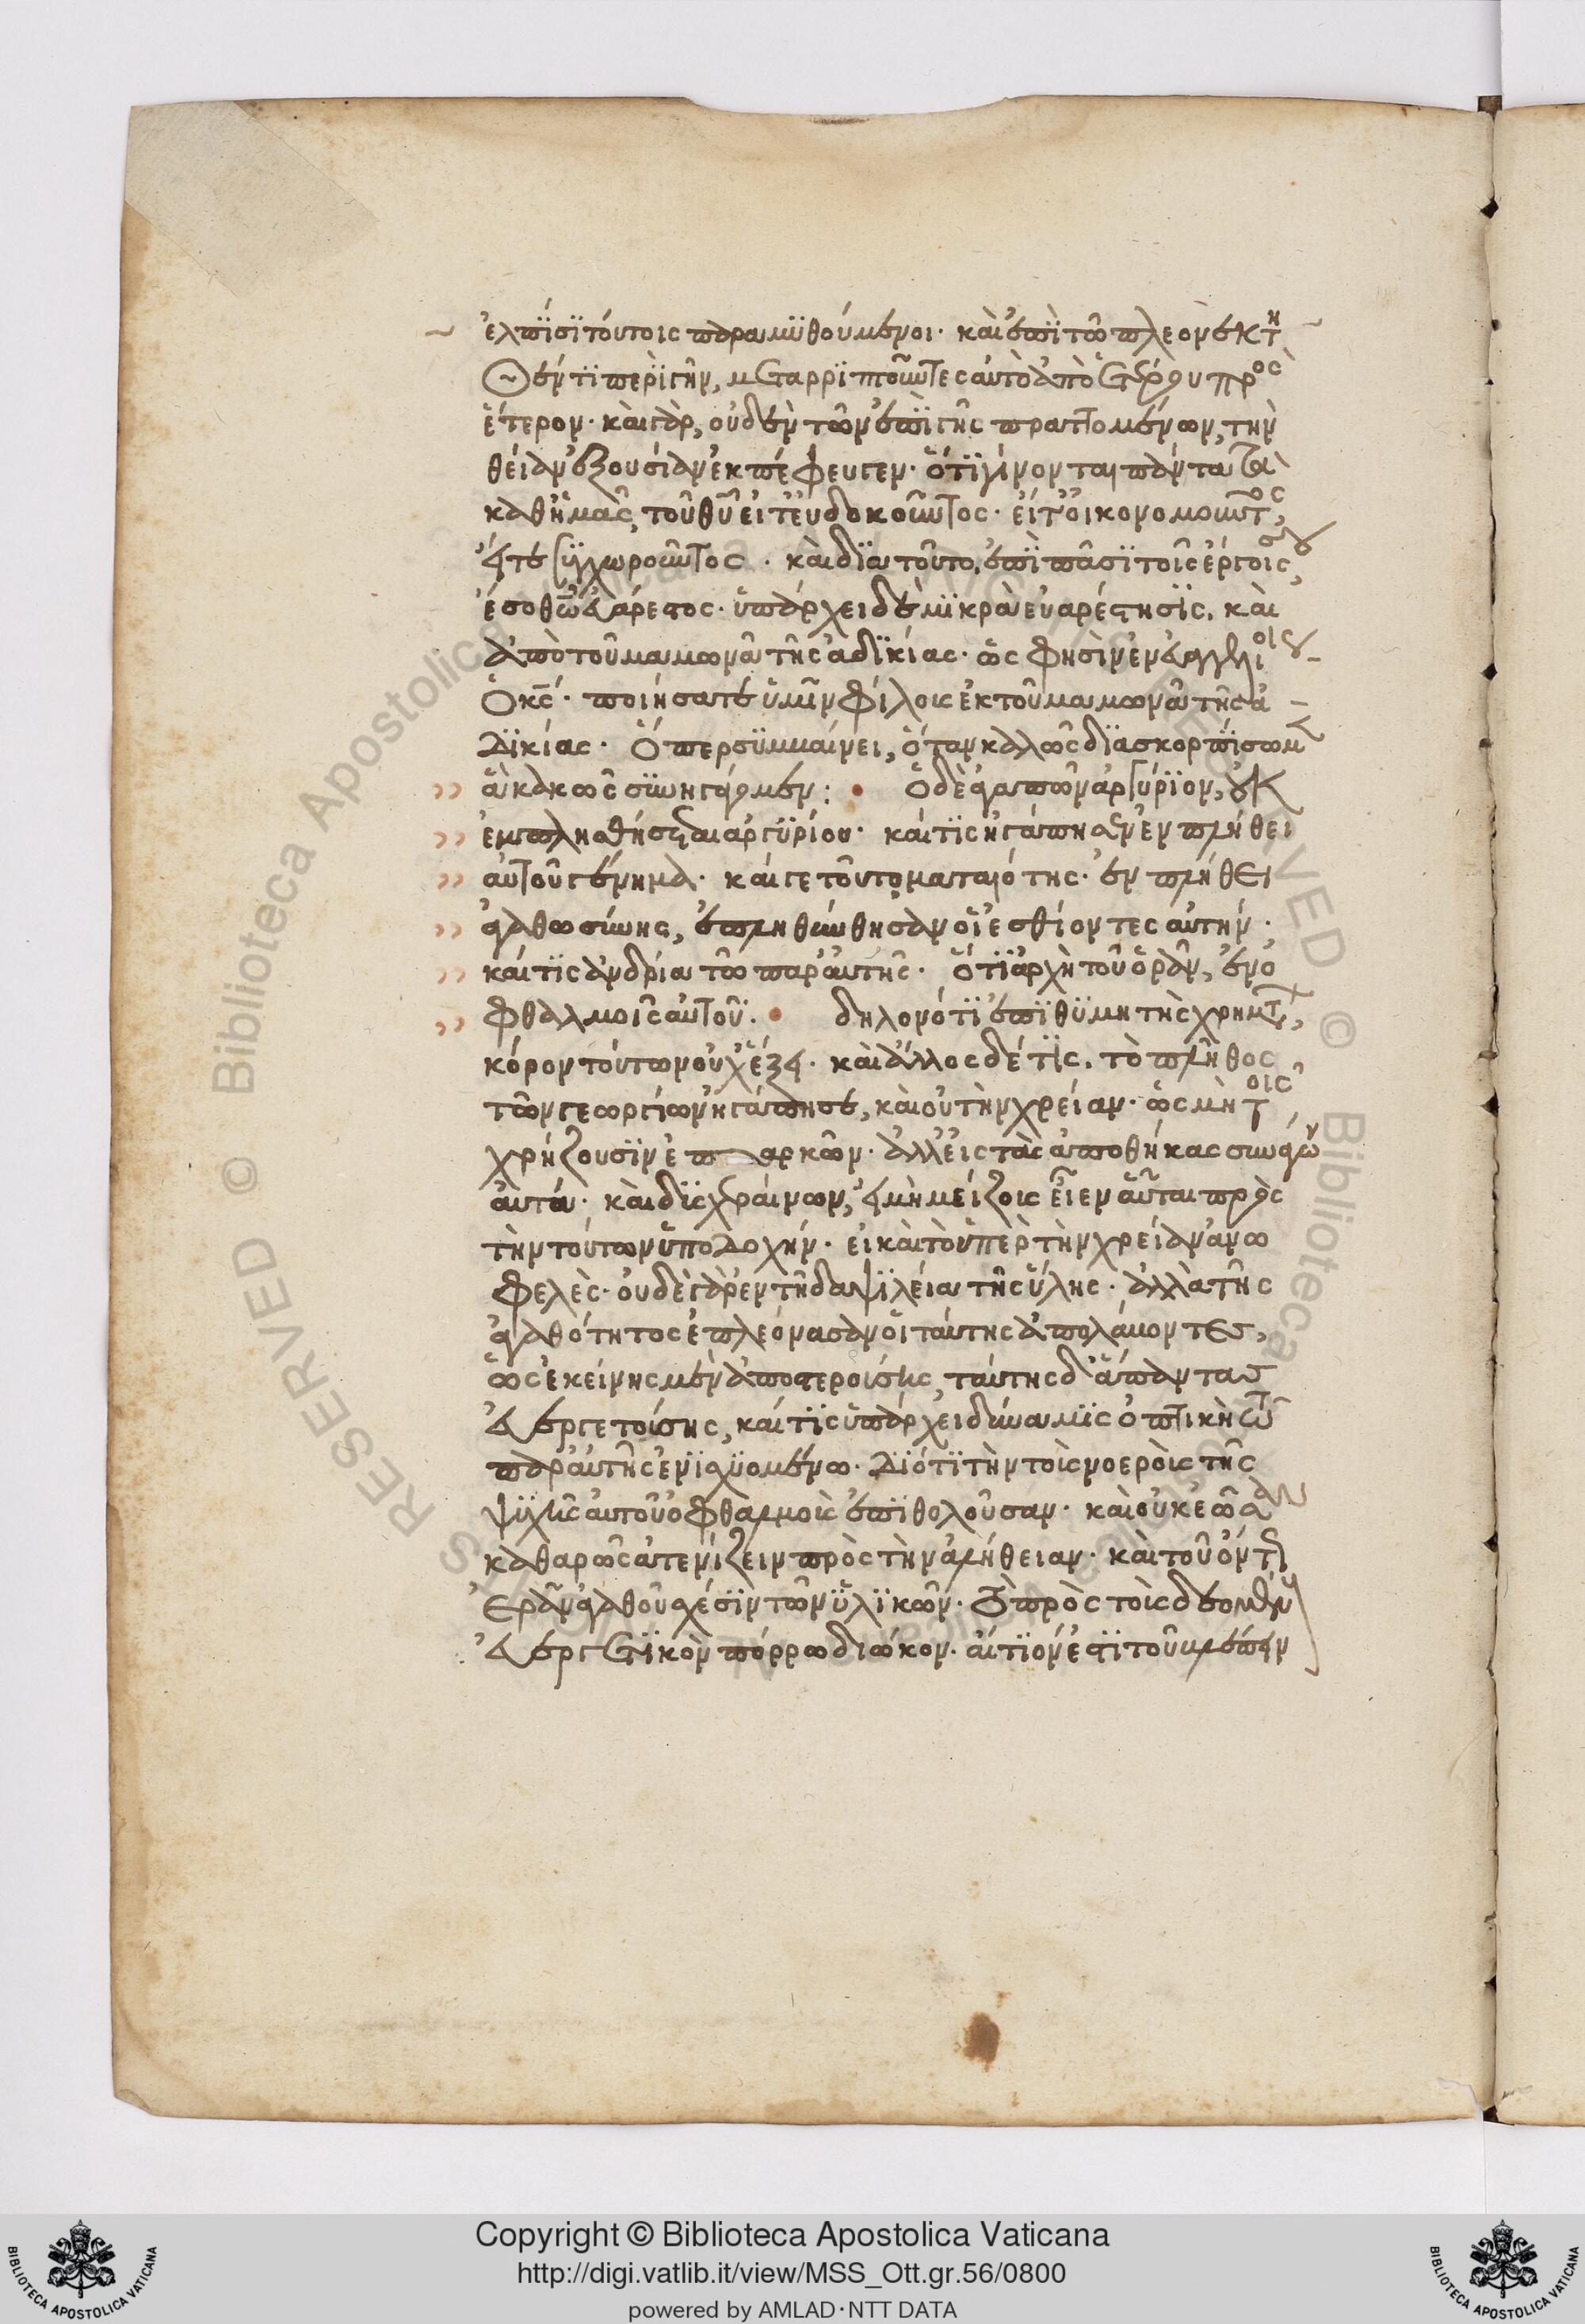 ἐλπίσι τούτοις παραμυθούμενοι· καὶ ἐπὶ τῶ πλέον ἐκτη
θέν τι περιττήν, μεταρριποῦντες αὐτὸ ἀπὸ ἑτέρου πρὸς
ἕτερον· καὶ γὰρ, οὐδὲν τῶν ἐπὶ γῆς πραττομένων, τὴν
θείαν ἐξουσίαν ἐκπέφευγεν· ὅτι γίνονται πάντα τὰ
καθ' ἡμᾶς, τοῦ θυ εἴτ' εὐδοκοῦντος· εἴτ' οἰκονομοῦντος,
εἴτε συγχωροῦντος· καὶ διὰ τοῦτο, ἐπὶ πᾶσι τοῖς ἔργοις σου
ἔσο θω εὐάρεστος· ὑπάρχει δὲ μικρὰ εὐαρέστησις, καὶ
ἀπὸ τοῦ μαμωνᾶ τῆς ἀδικίας· ὥς φησὶν ἐν εὐαγγελίοις
ὁ κς· ποιήσατε ὑμῖν φίλοις ἐκ τοῦ μαμωνᾶ τῆς ἀ
δικίας· ὅπερ συμμαίνει, ὅταν καλῶς διασκορπίσωμεν
ἃ κακῶς συνηγάγομεν: Ὁ δὲ ἀγαπῶν ἀργύριον, οὐκ
ἐμπλησθήσεται ἀργυρίου· καί τις ἠγάπησεν ἐν πλήθει
αὐτοῦ γένημα· καί γε τοῦτο ματαιότης· ἐν πλήθει
ἀγαθωσύνης, ἐπληθύνθησαν οἱ ἐσθίοντες αὐτήν·
καί τις ἀνδρία τῶ παρ' αὐτῆς· ὅτι ἀρχὴ τοῦ ὁρᾶν, ἐν ὀ
φθαλμοῖς αὐτοῦ. δηλονότι ἐπιθυμητὴς χρημάτων,
κόρον τούτων οὐχ ἕξει· καὶ ἄλλος δέ τις, τὸ πλῆθος
τῶν γεωργιῶν ἠγάπησε, καὶ οὐ τὴν χρείαν· ὡς μὴ τοῖς
χρήζουσιν ἐπαρκῶν· ἀλλ' εἰς τὰς ἀποθήκας συνάγων
αὐτά· καὶ δυσχεραίνων, εἰ μὴ μείζοις εἶεν αὗται πρὸς
τὴν τούτων ὑποδοχήν· εἰ καὶ τὸ ὑπὲρ τὴν χρείαν ἀνω
φελὲς· οὐδὲ γὰρ ἐν τῆ δαψιλεία τῆς ὕλης· ἀλλὰ τῆς
ἀγαθότητος ἐπλεόνασαν οἱ ταύτης ἀπολάμοντες,
ὡς ἐκείνης μὲν ἀποστεροίσης, ταύτης δ' ἅπαντας
εὐεργετοίσης, καί τις ὑπάρχει δύναμις ὀπτικὴ τῶ
παρ' αὐτῆς ἐνισχυομένω· διότι τὴν τοὶς νοεροὶς τῆς
ψυχῆς αὐτοῦ ὀφθαλμοὶς ἐπιθολοῦσαν· καὶ οὐκ ἐῶσαν
καθαρῶς ἀτενίζειν πρὸς τὴν ἀλήθειαν· καὶ τοῦ ὄντως
ἐρᾶν ἀγαθοῦ σχέσιν τῶν ὑλικῶν· τὸ πρὸς τοὶς δεομένους
εὐεργετικὸν πόρρω διῶκον· αἴτιόν ἐστι τοῦ βλέπειν
Copyright © Biblioteca Apostolica Vaticana
http://digi.vatlib.it/view/MSS_Ott.gr.56/0800
powered by AMLAD·NTT DATA